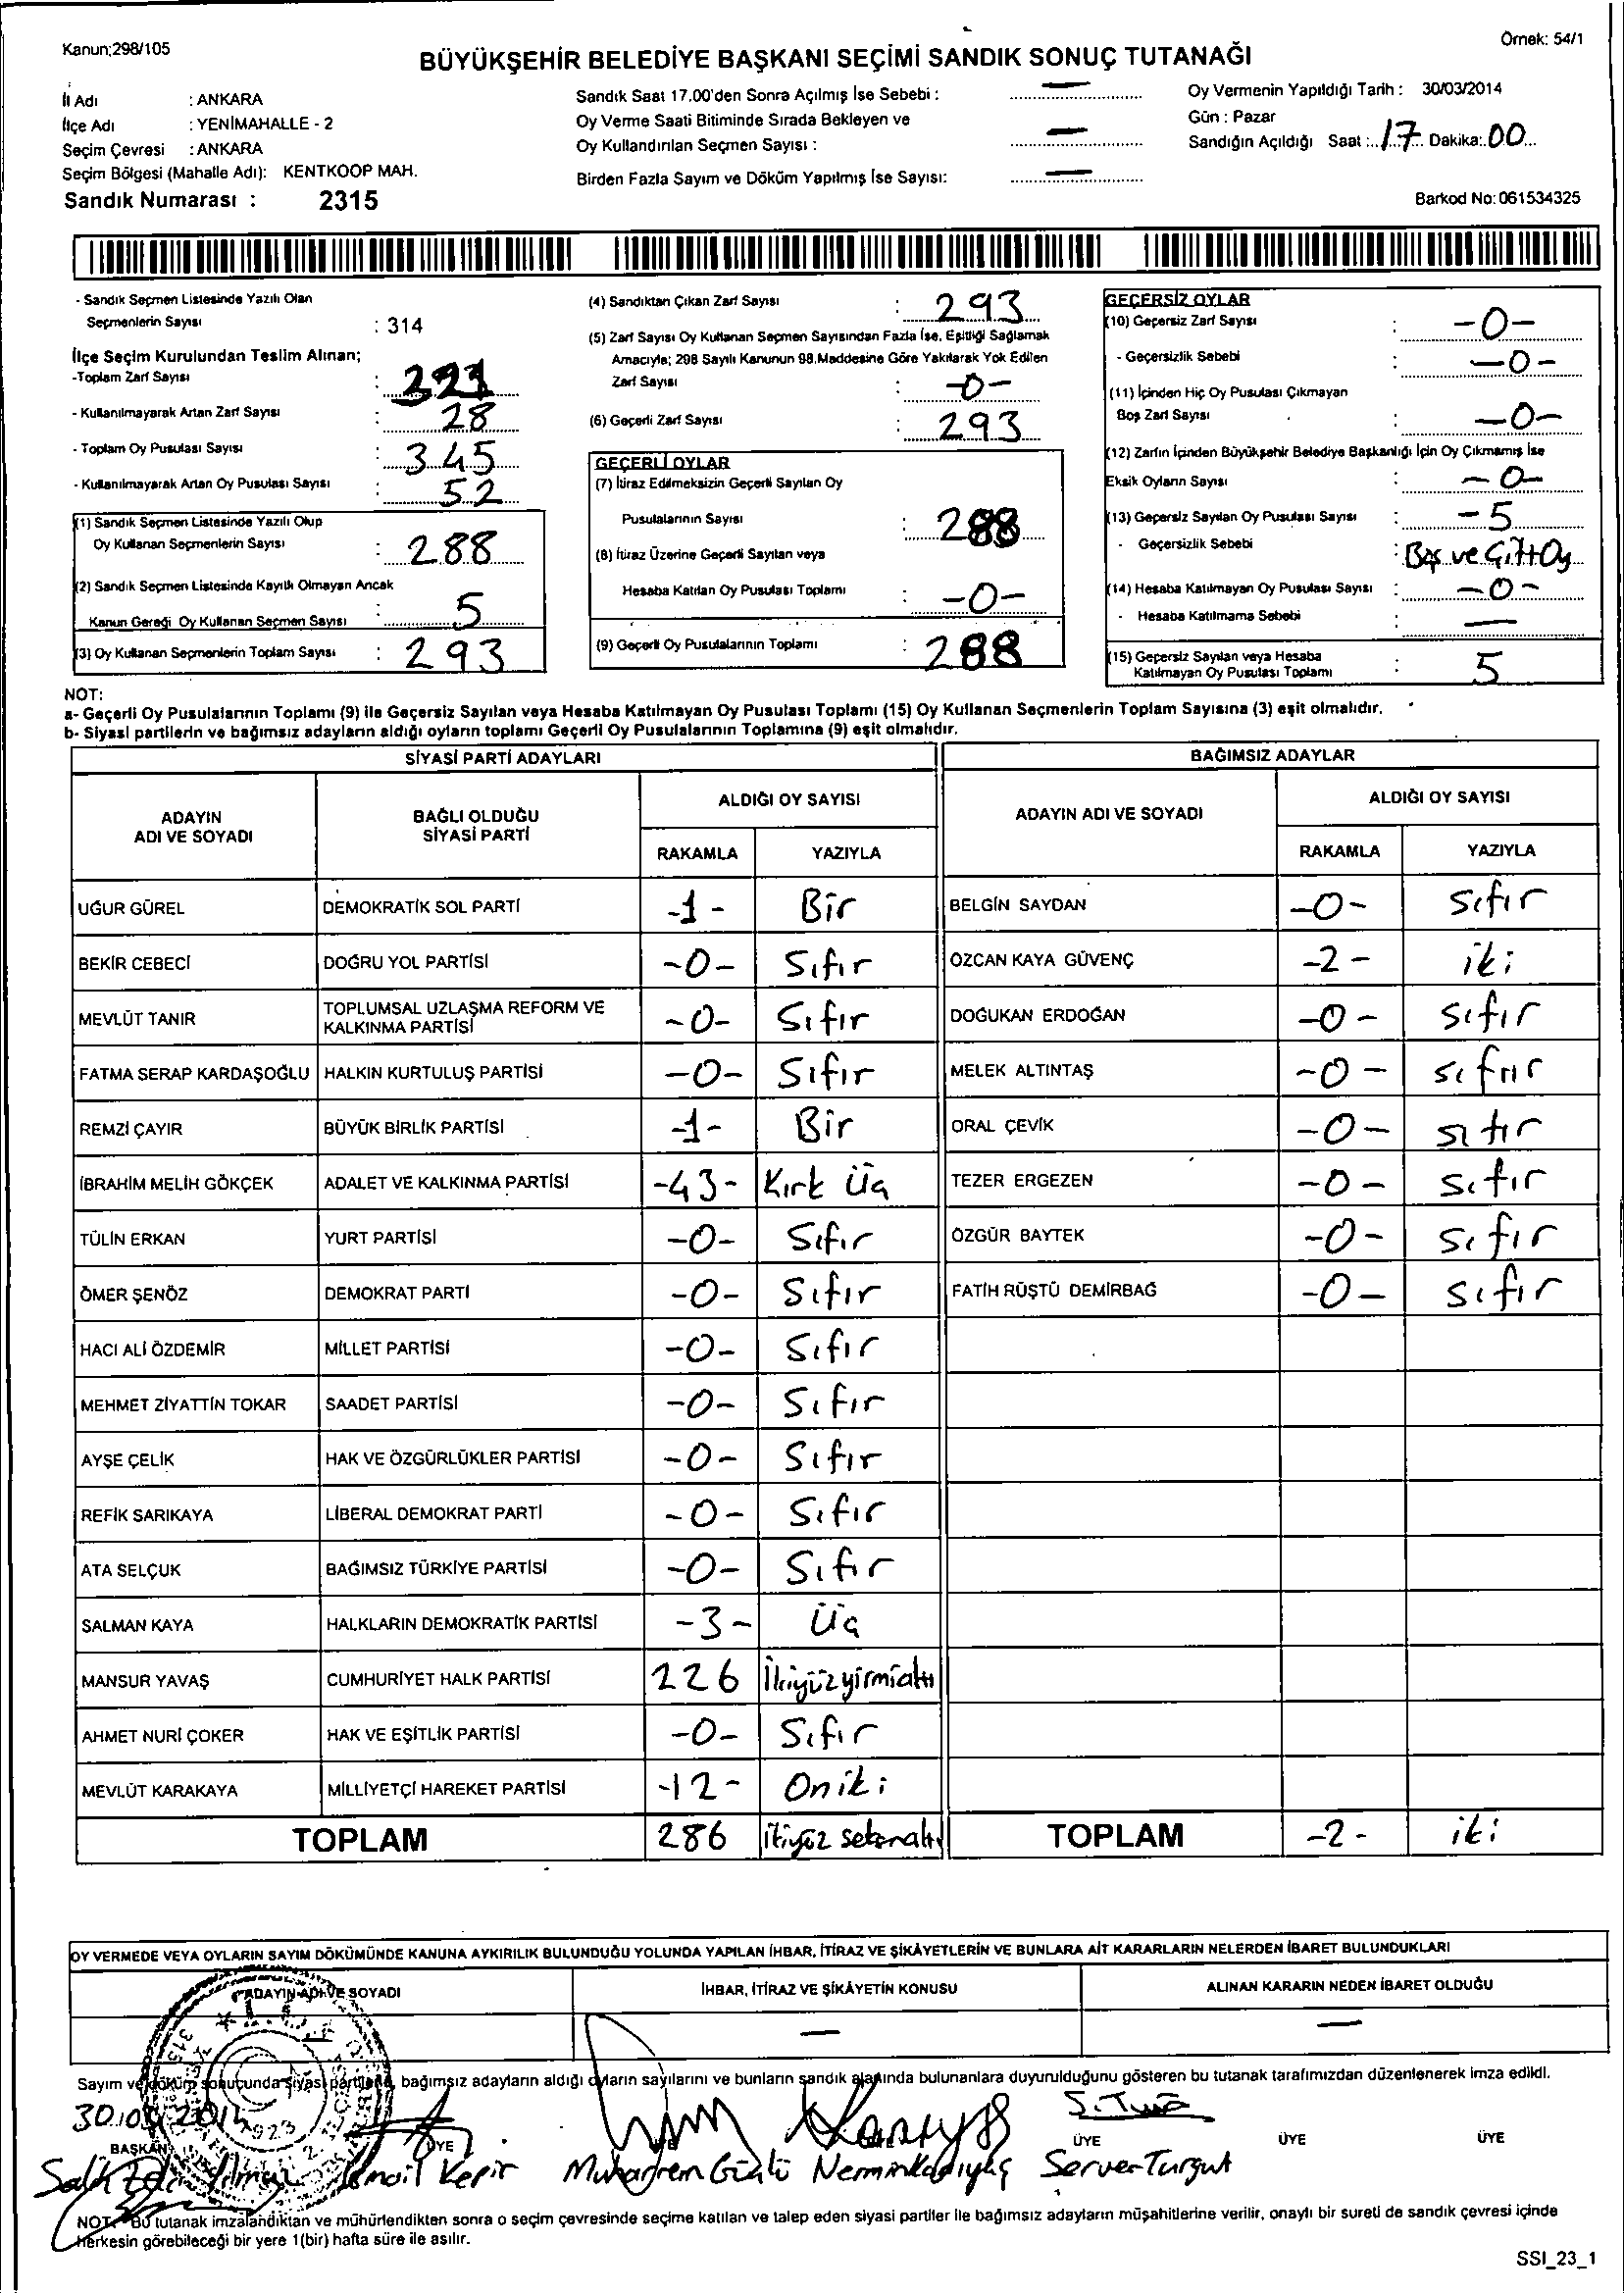 Kanun;298/105
Örnek: 54/1
BÜYÜKŞEHİR BELEDİYE BAŞKANI SEÇİMİ SANDIK SONUÇ TUTANAĞI
İl Adı : ANKARA
İlçe Adı : YENİMAHALLE - 2
Seçim Çevresi : ANKARA
Seçim Bölgesi (Mahalle Adı): KENTKOOP MAH.
Sandık Numarası : 2315
Sandık Saat 17.00'den Sonra Açılmış İse Sebebi : —
Oy Verme Saati Bitiminde Sırada Bekleyen ve
Oy Kullandırılan Seçmen Sayısı : —
Birden Fazla Sayım ve Döküm Yapılmış İse Sayısı: —
Oy Vermenin Yapıldığı Tarih : 30/03/2014
Gün : Pazar
Sandığın Açıldığı Saat : 17 Dakika: 00
Barkod No: 061534325
- Sandık Seçmen Listesinde Yazılı Olan
Seçmenlerin Sayısı : 314
İlçe Seçim Kurulundan Teslim Alınan;
-Toplam Zarf Sayısı :
- Kullanılmayarak Artan Zarf Sayısı : 28
- Toplam Oy Pusulası Sayısı : 345
- Kullanılmayarak Artan Oy Pusulası Sayısı : 52
(1) Sandık Seçmen Listesinde Yazılı Olup
Oy Kullanan Seçmenlerin Sayısı : 288
(2) Sandık Seçmen Listesinde Kayıtlı Olmayan Ancak
Kanun Gereği Oy Kullanan Seçmen Sayısı : 5
(3) Oy Kullanan Seçmenlerin Toplam Sayısı : 293
(4) Sandıktan Çıkan Zarf Sayısı : 293
(5) Zarf Sayısı Oy Kullanan Seçmen Sayısından Fazla İse, Eşitliği Sağlamak
Amacıyla; 298 Sayılı Kanunun 98.Maddesine Göre Yakılarak Yok Edilen
Zarf Sayısı : -0-
(6) Geçerli Zarf Sayısı : 293
GEÇERLİ OYLAR
(7) İtiraz Edilmeksizin Geçerli Sayılan Oy
Pusulalarının Sayısı : 288
(8) İtiraz Üzerine Geçerli Sayılan veya
Hesaba Katılan Oy Pusulası Toplamı : -0-
(9) Geçerli Oy Pusulalarının Toplamı : 288
GEÇERSİZ OYLAR
(10) Geçersiz Zarf Sayısı : -0-
- Geçersizlik Sebebi : -0-
(11) İçinden Hiç Oy Pusulası Çıkmayan
Boş Zarf Sayısı : -0-
(12) Zarfın İçinden Büyükşehir Belediye Başkanlığı İçin Oy Çıkmamış İse
Eksik Oyların Sayısı : -0-
(13) Geçersiz Sayılan Oy Pusulası Sayısı : -5
- Geçersizlik Sebebi : Boş ve Çift Oy
(14) Hesaba Katılmayan Oy Pusulası Sayısı : -0-
- Hesaba Katılmama Sebebi : —
(15) Geçersiz Sayılan veya Hesaba
Katılmayan Oy Pusulası Toplamı : 5
NOT:
a- Geçerli Oy Pusulalarının Toplamı (9) ile Geçersiz Sayılan veya Hesaba Katılmayan Oy Pusulası Toplamı (15) Oy Kullanan Seçmenlerin Toplam Sayısına (3) eşit olmalıdır.
b- Siyasi partilerin ve bağımsız adayların aldığı oyların toplamı Geçerli Oy Pusulalarının Toplamına (9) eşit olmalıdır.
SİYASİ PARTİ ADAYLARI
BAĞIMSIZ ADAYLAR
ADAYIN ADI VE SOYADI
BAĞLI OLDUĞU SİYASİ PARTİ
ALDIĞI OY SAYISI
RAKAMLA YAZIYLA
ADAYIN ADI VE SOYADI
ALDIĞI OY SAYISI
RAKAMLA YAZIYLA
UĞUR GÜREL DEMOKRATİK SOL PARTİ -1- Bir BELGİN SAYDAN -0- Sıfır
BEKİR CEBECİ DOĞRU YOL PARTİSİ -0- Sıfır ÖZCAN KAYA GÜVENÇ -2- iki
MEVLÜT TANIR TOPLUMSAL UZLAŞMA REFORM VE KALKINMA PARTİSİ -0- Sıfır DOĞUKAN ERDOĞAN -0- sıfır
FATMA SERAP KARDAŞOĞLU HALKIN KURTULUŞ PARTİSİ -0- Sıfır MELEK ALTINTAŞ -0- sıfır
REMZİ ÇAYIR BÜYÜK BİRLİK PARTİSİ -1- Bir ORAL ÇEVİK -0- sıfır
İBRAHİM MELİH GÖKÇEK ADALET VE KALKINMA PARTİSİ -43- Kırk Üç TEZER ERGEZEN -0- sıfır
TÜLİN ERKAN YURT PARTİSİ -0- Sıfır ÖZGÜR BAYTEK -0- sıfır
ÖMER ŞENÖZ DEMOKRAT PARTİ -0- Sıfır FATİH RÜŞTÜ DEMİRBAĞ -0- sıfır
HACI ALİ ÖZDEMİR MİLLET PARTİSİ -0- Sıfır
MEHMET ZİYATTİN TOKAR SAADET PARTİSİ -0- Sıfır
AYŞE ÇELİK HAK VE ÖZGÜRLÜKLER PARTİSİ -0- Sıfır
REFİK SARIKAYA LİBERAL DEMOKRAT PARTİ -0- Sıfır
ATA SELÇUK BAĞIMSIZ TÜRKİYE PARTİSİ -0- Sıfır
SALMAN KAYA HALKLARIN DEMOKRATİK PARTİSİ -3- Üç
MANSUR YAVAŞ CUMHURİYET HALK PARTİSİ 226 İkiyüzyirmialtı
AHMET NURİ ÇOKER HAK VE EŞİTLİK PARTİSİ -0- Sıfır
MEVLÜT KARAKAYA MİLLİYETÇİ HAREKET PARTİSİ -12- Oniki
TOPLAM 286 ikiyüz seksenaltı TOPLAM -2- iki
OY VERMEDE VEYA OYLARIN SAYIM DÖKÜMÜNDE KANUNA AYKIRILIK BULUNDUĞU YOLUNDA YAPILAN İHBAR, İTİRAZ VE ŞİKÂYETLERİN VE BUNLARA AİT KARARLARIN NELERDEN İBARET BULUNDUKLARI
ADAYIN ADI VE SOYADI İHBAR, İTİRAZ VE ŞİKÂYETİN KONUSU ALINAN KARARIN NEDEN İBARET OLDUĞU
— —
Sayım ve döküm sonucunda siyasi partilerin, bağımsız adayların aldığı oyların sayılarını ve bunların sandık alanında bulunanlara duyurulduğunu gösteren bu tutanak tarafımızdan düzenlenerek imza edildi.
30.03.2014
S. Tur
BAŞKAN ÜYE ÜYE ÜYE ÜYE
İsmail Kepir Muharrem Nermin Server Turgut
NOT: Bu tutanak imzalandıktan ve mühürlendikten sonra o seçim çevresinde seçime katılan ve talep eden siyasi partiler ile bağımsız adayların müşahitlerine verilir, onaylı bir sureti de sandık çevresi içinde
herkesin görebileceği bir yere 1(bir) hafta süre ile asılır.
SSI_23_1